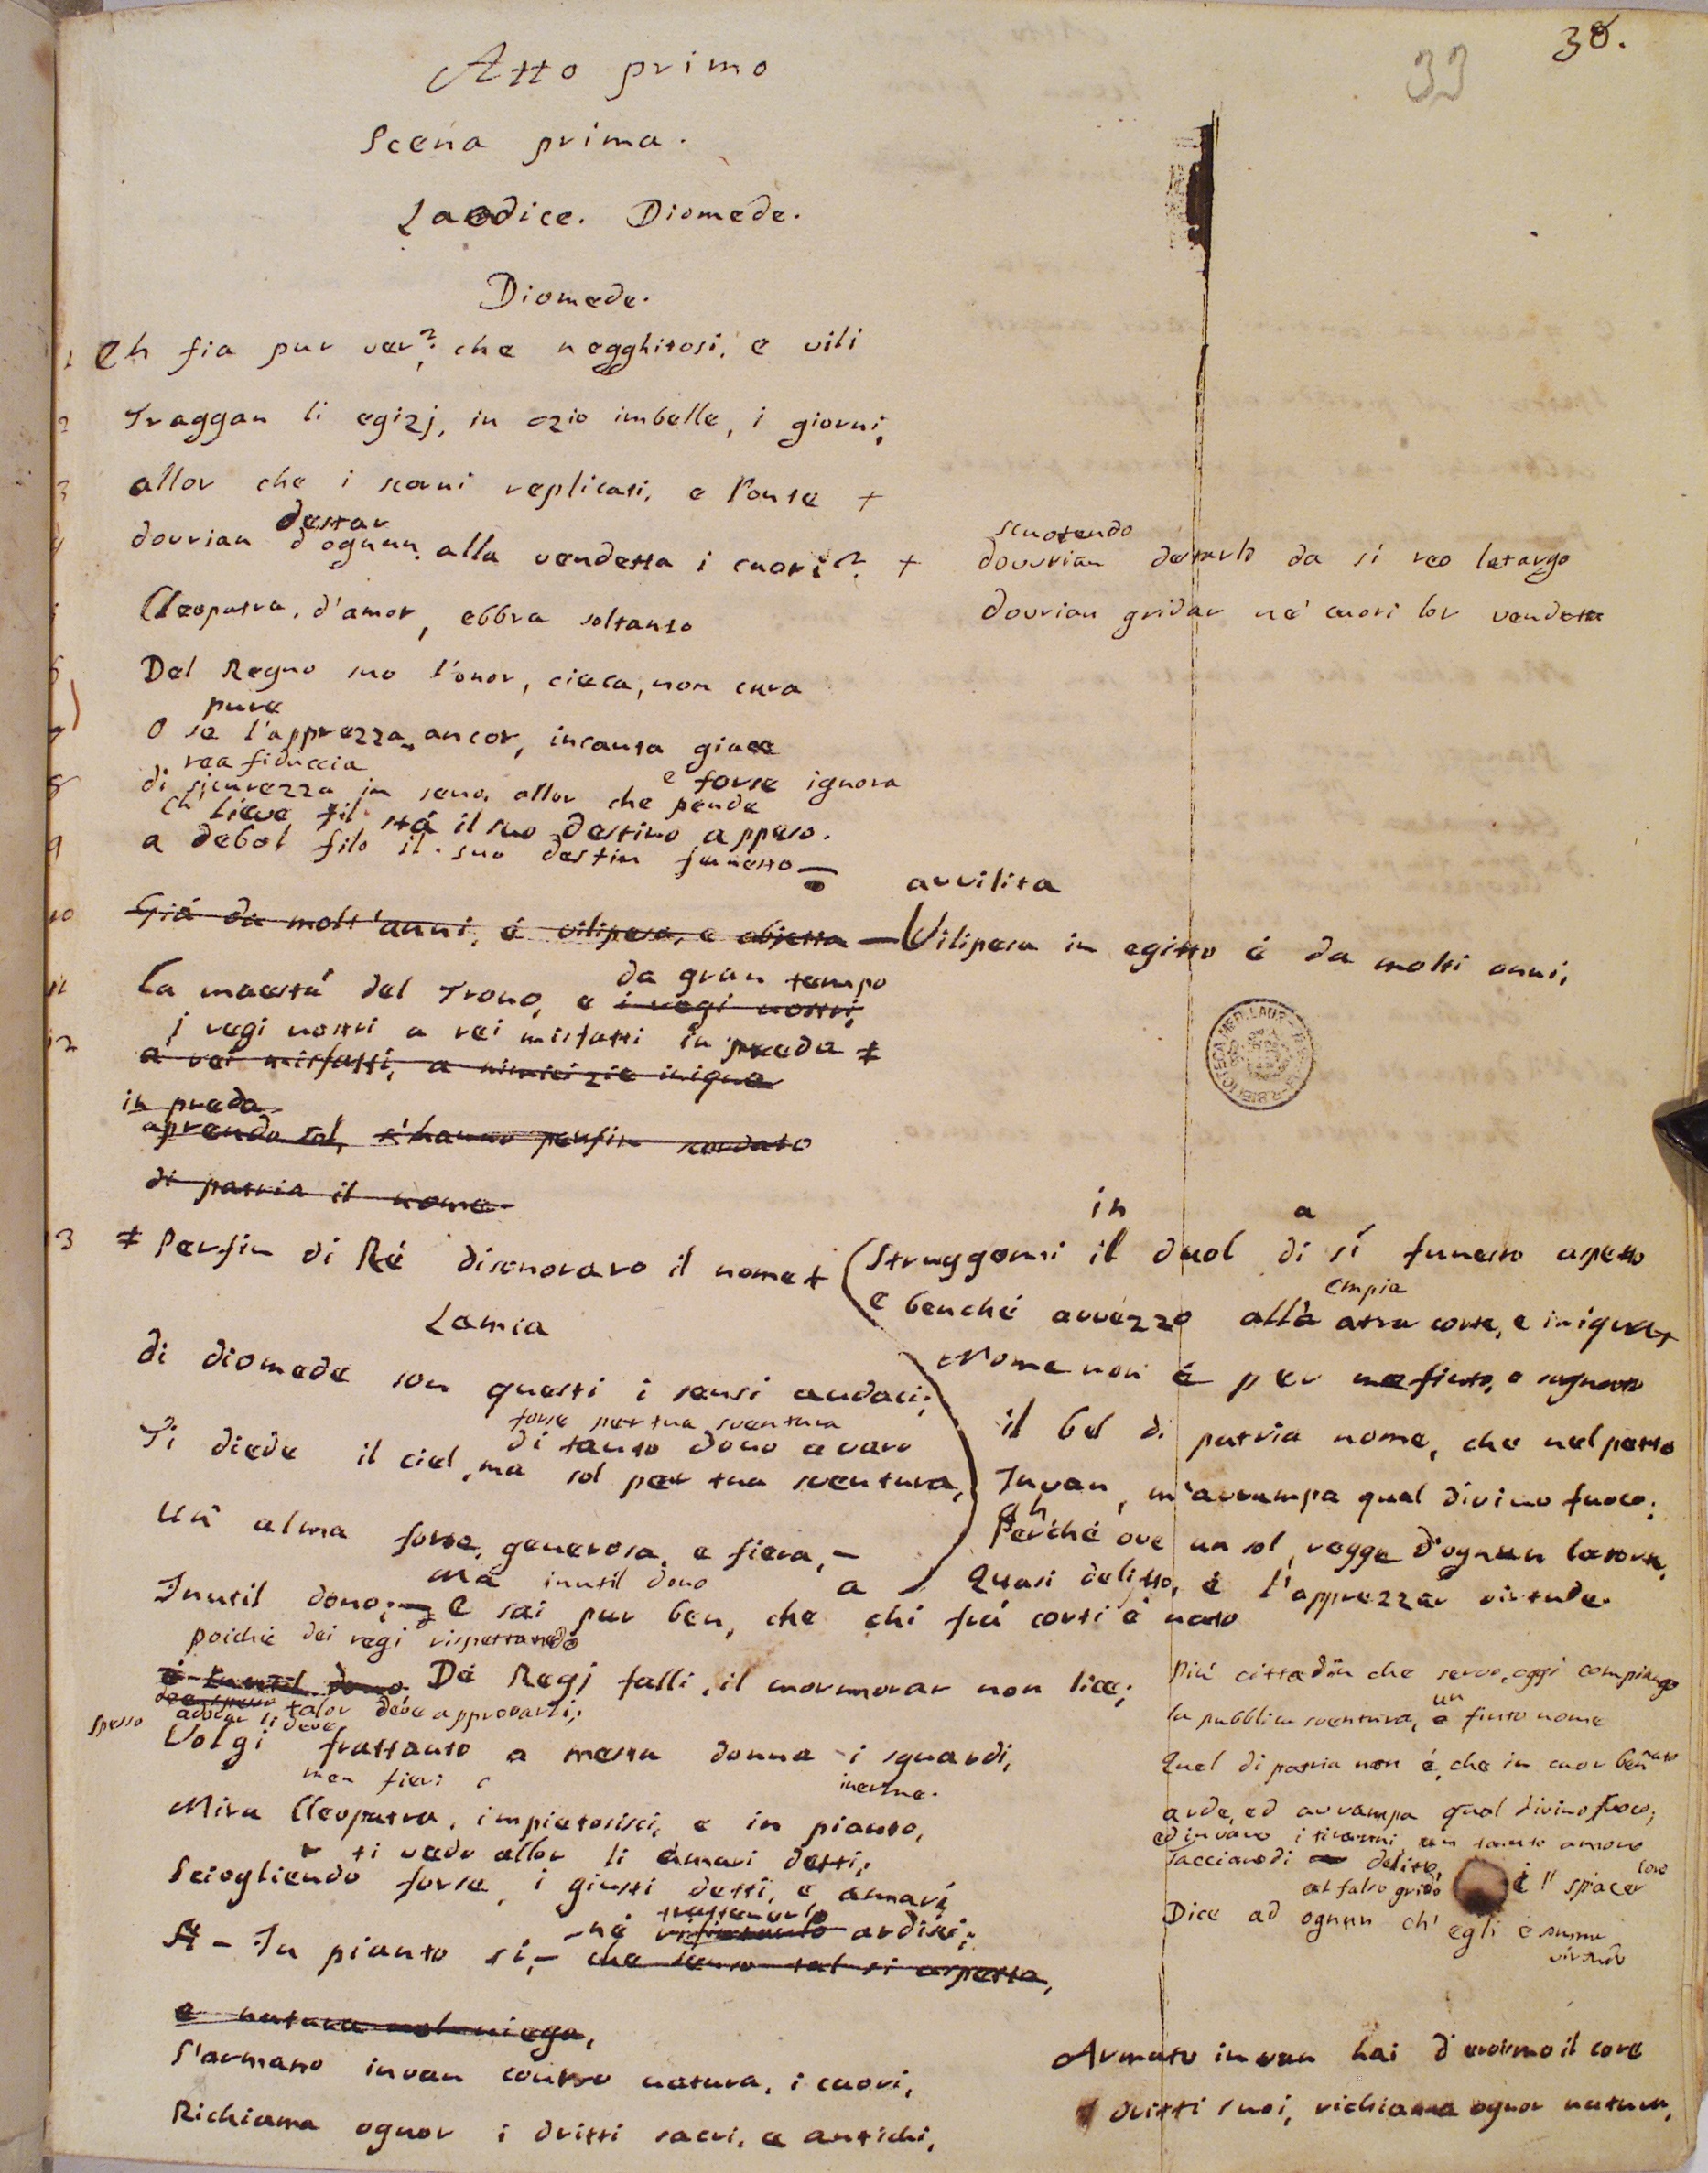 38.
33
Atto primo
Scena prima.
Laodice. Diomede.
Diomede.
1 Eh fia pur ver? che negghitosi, e vili
2 Traggan li egizj, in ozio imbelle, i giorni,
3 allor che i scorni replicati, e l'onte +
destar
4 dovrian d'ognun alla vendetta i cuori? +
scuotendo
dovvrian destarli da sí reo letargo
dovrian gridar ne' cuori lor vendetta
5 Cleopatra, d'amor, ebbra soltanto
6 Del Regno suo l'onor, cieca, non cura
pure
7 O se l'apprezza ancor, incauta giace
rea fiducia e forse ignora
8 di sicurezza in seno, allor che pende
ch' lieve fil stá il suo destino appeso.
9 a debol filo il suo destin funesto
avvilita
10 Giá da molt'anni, é vilipesa, e abjetta — Vilipesa in egitto é da molti anni,
da gran tempo
11 La maestá del Trono, e i regi nostri,
i regi nostri a rei misfatti in preda ‡
12 a rei misfatti, a nimicizie inique
in preda
aprendo sol, s'hanno perfin scordato
di patria il nome
13 ‡ Perfin di Ré disonoraro il nome +
in a
(Struggomi il duol di sí funesto aspetto
empia
e benché avvezzo alla atra corte, e iniqua +
Nome non é per me finto, o sognato
il bel di patria nome, che nel petto
Invan, m'avvampa qual divino fuoco;
ah
Perché ove un sol, regge d'ognun la sorte,
Quasi delitto, é l'apprezzar virtude.
Lamia
di diomede son questi i sensi audaci;
forse per tua sventura
di tanto dono avaro
Ti diede il ciel, ma sol per tua sventura,
Un alma forse, generosa, e fiera, —
ma inutil dono a
Inutil dono; — e sai pur ben, che chi frá corti é nato
poiché dei regi rispettando
é inutil dono Dé Regj falli, il mormorar non lice;
spesso adorar li deve talor deve approvarli;
Volgi frattanto a mesta donna i sguardi,
men fieri inerme.
Mira Cleopatra, impietosisci, e in pianto,
ti vedo allor li amari detti;
Sciogliendo forse, i giusti detti, e amari
trattenerlo
né ardisci;
A — In pianto sí, — che senso tal si aspetta,
e natura nol niega,
S'armano invan contro natura, i cuori,
Richiama ognor i dritti sacri, e antichi,
Piú cittadin che servo, oggi compiango
un
la pubblica sventura, e finto nome
Quel di patria non é, che in cuor ben nato
arde, ed avvampa qual divino fuoco;
ed invano i tiranni un tanto amore
Taccian di delitto,
al falso grido
Dice ad ognun ch' egli é somma
virtude
Armato invan hai d'eroismo il core
I dritti suoi, richiama ognor natura,